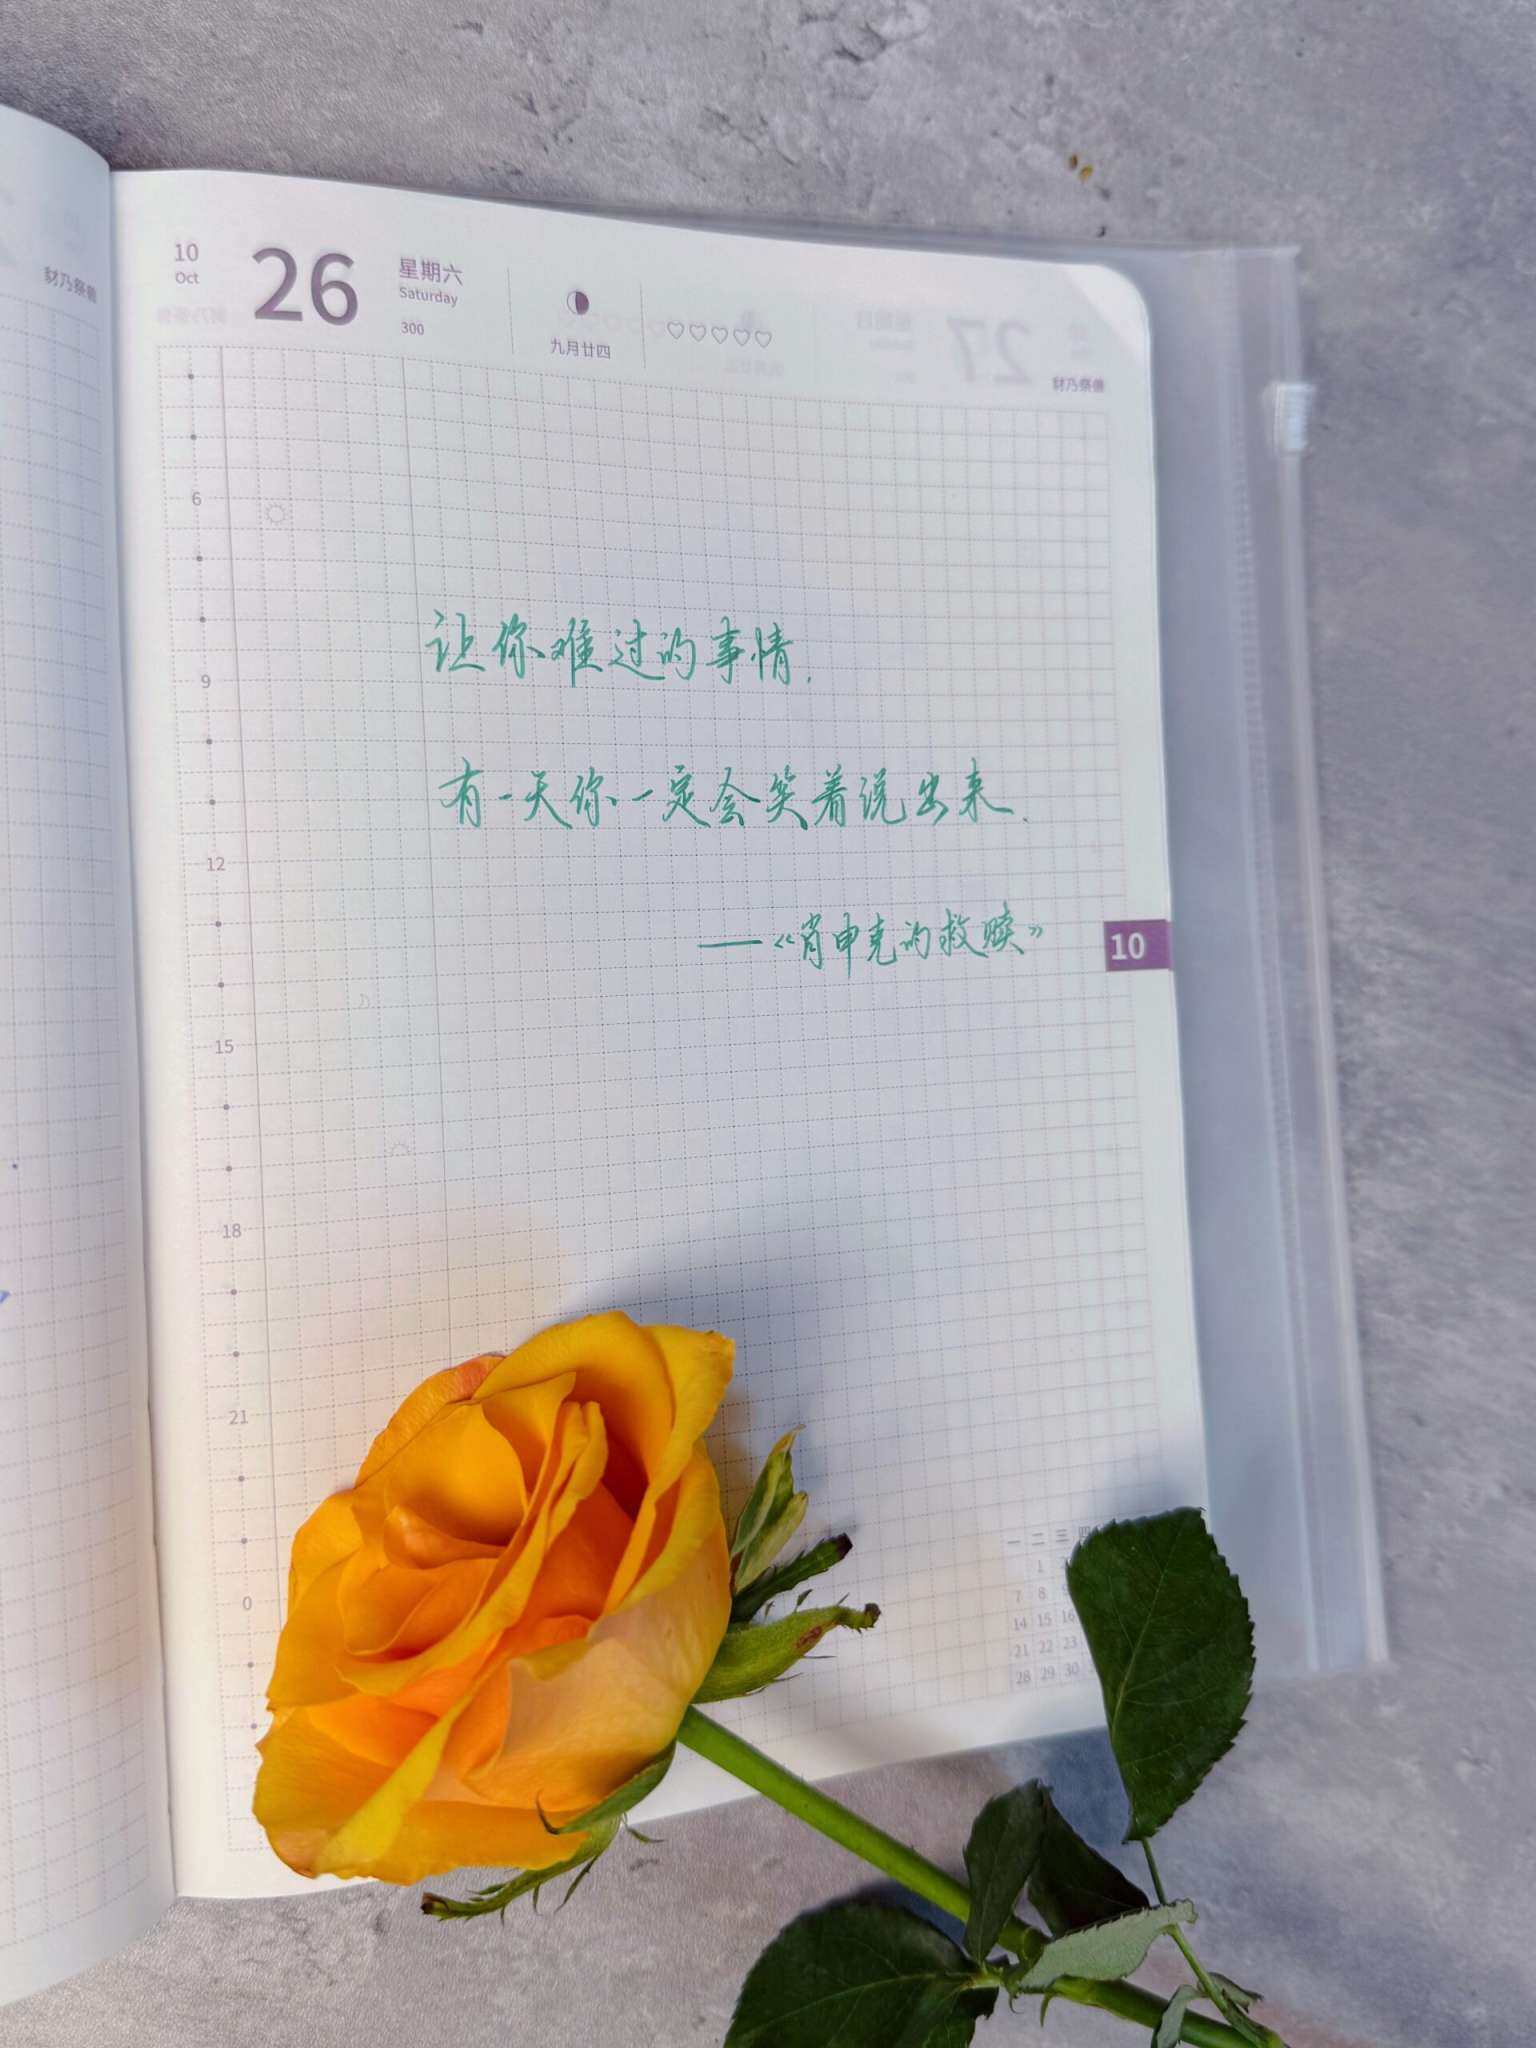 10
Oct
26
星期六
Saturday
300
九月廿四
豺乃祭兽
豺乃祭兽
6
9
12
15
18
21
0
让你难过的事情.
有一天你一定会笑着说出来.
——《肖申克的救赎》
10
一 二 三 四
1
7 8 9
14 15 16
21 22 23
28 29 30
27